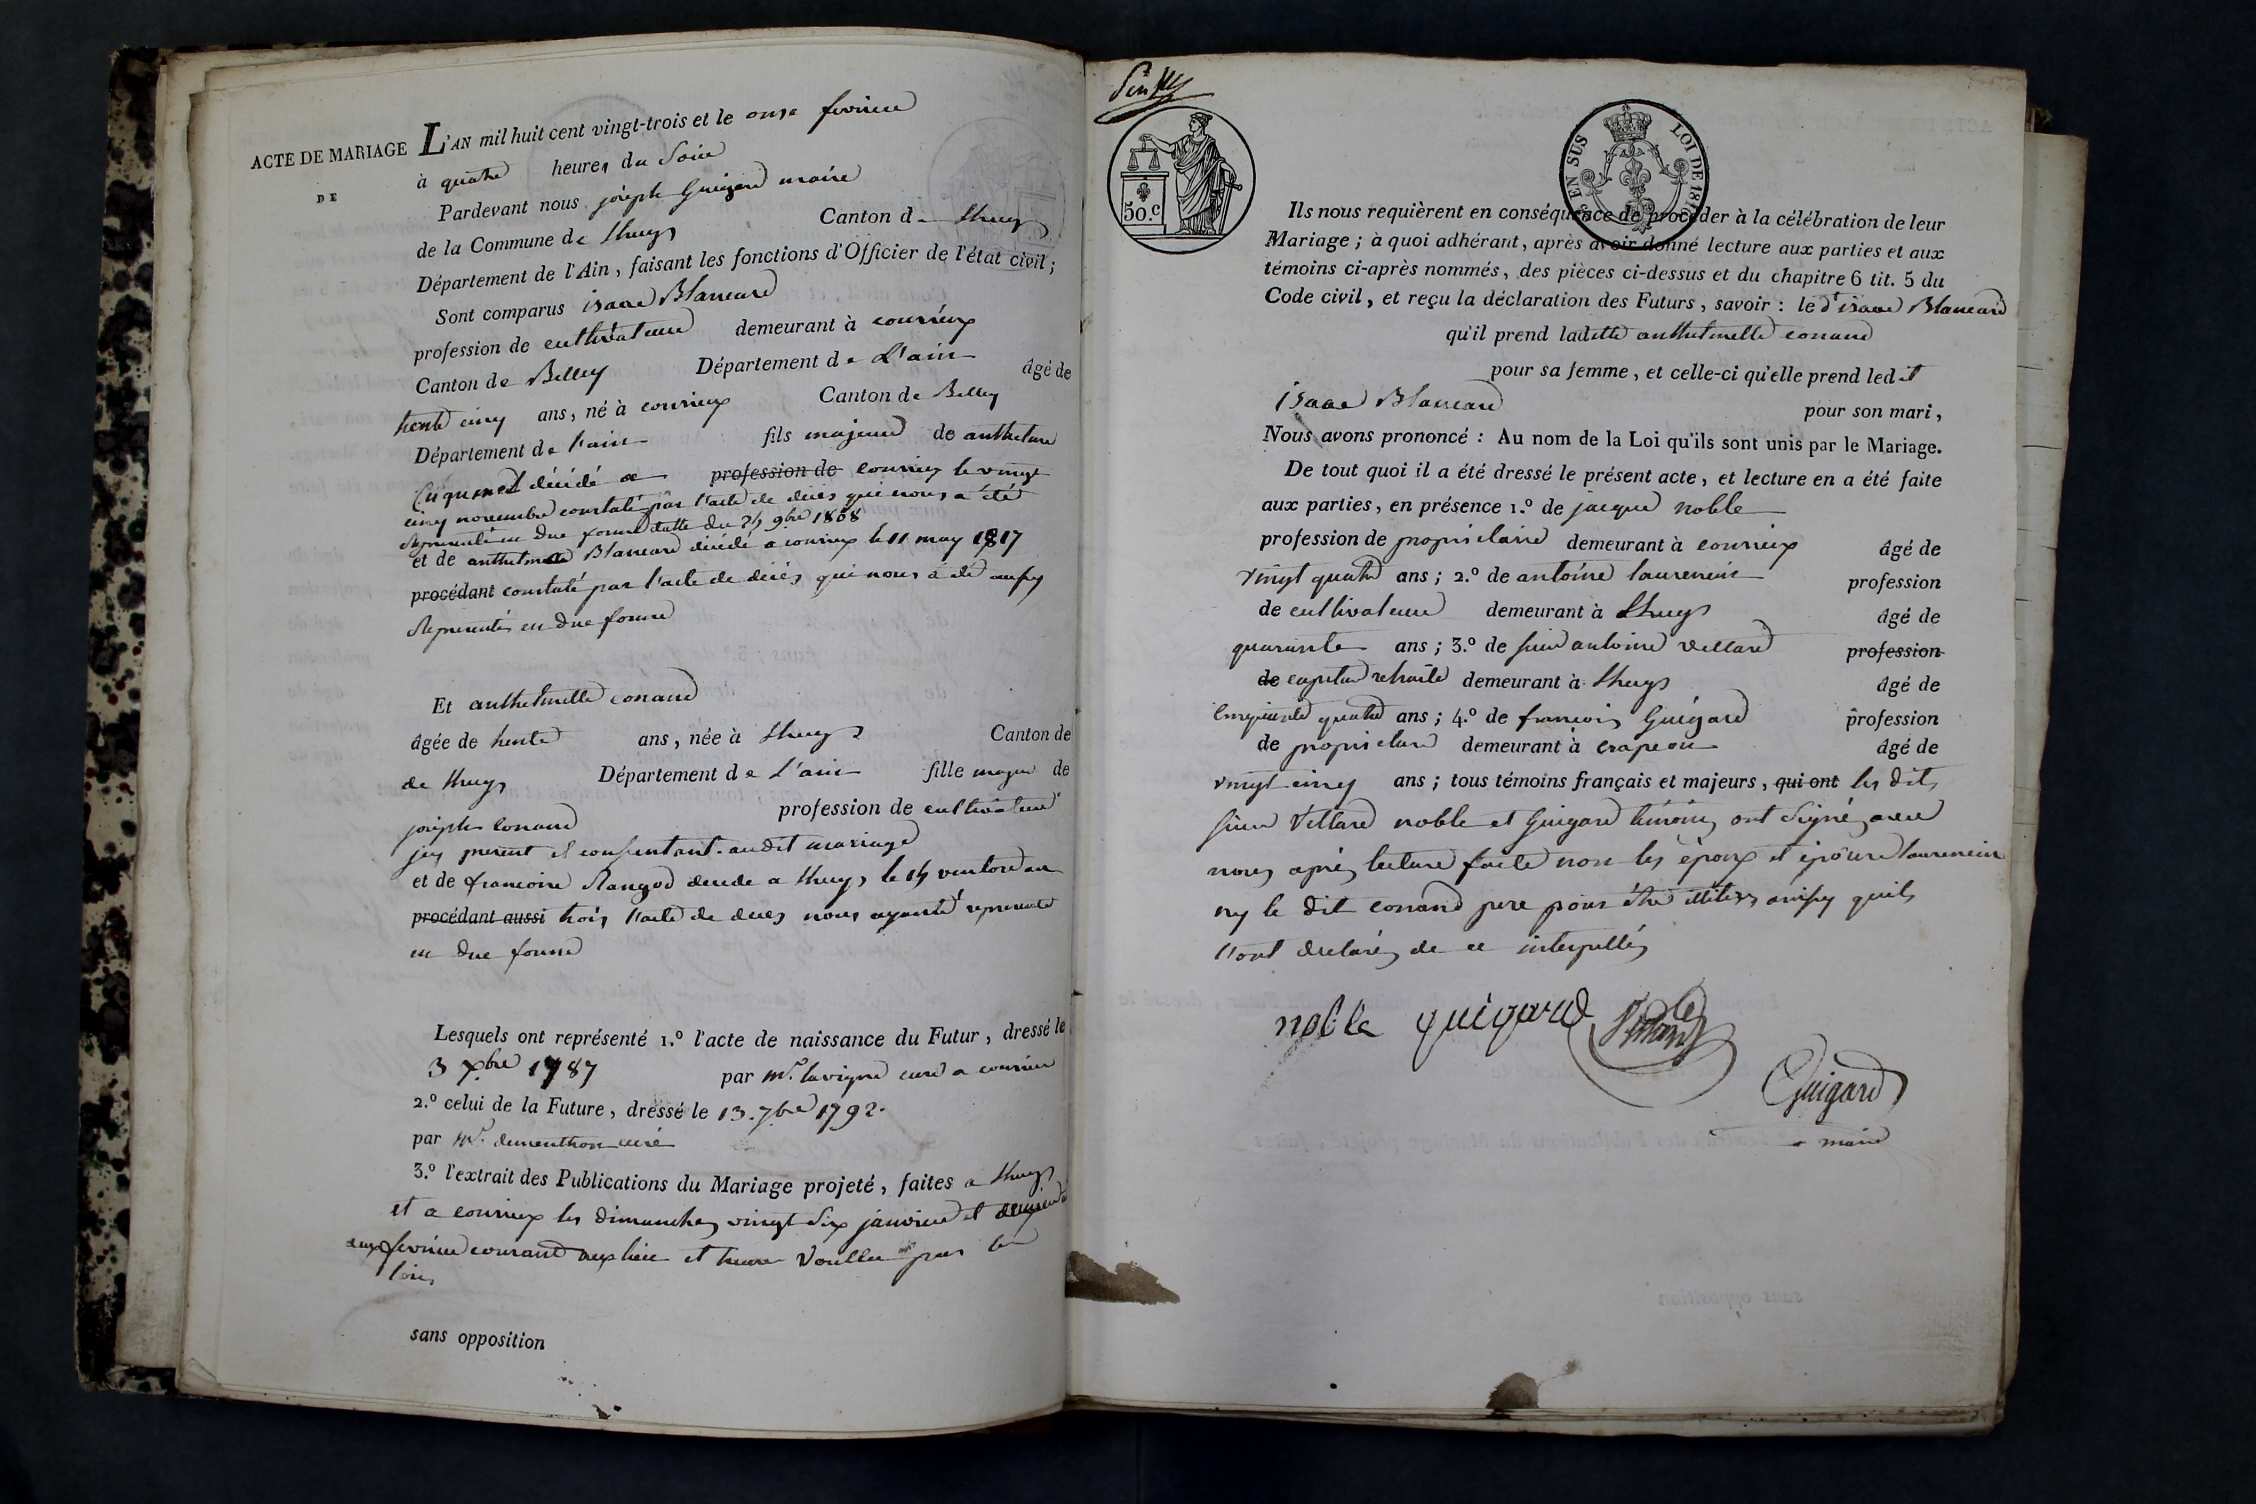 ACTE DE MARIAGE
DE
L'AN mil huit cent vingt-trois et le onze fevrier
à quatre heures du Soir
Pardevant nous joseph Guigard maire
de la Commune de Lhuys Canton de Lhuys
Département de l'Ain, faisant les fonctions d'Officier de l'état civil;
Sont comparus isaac Blancard
profession de cultivateur demeurant à conzieux
Canton de Belley Département de L'ain âgé de
trente cinq ans, né à conzieux Canton de Belley
Département de l'ain fils majeur de anthelme
décédé a profession de conzieux le vingt
cinq novembre constaté par l'acte de décès qui nous a été
Representé en due forme datte du 25 9bre 1808
et de anthelmette Blancard décédé a conzieux le 11 may 1817
procédant constaté par l'acte de décès qui nous a été aussy
Representé en due forme
Et anthelmette conand
âgée de trente ans, née à Lhuys Canton de
de Lhuys Département de L'ain fille majeur de
joseph Conand profession de cultivateur
jcy present et consentant audit mariage
et de francoise Rangod decede a Lhuys le 14 ventose an
procédant aussi trois l'acte de deces nous ayanté representé
en due forme
Lesquels ont représenté 1.º l'acte de naissance du Futur, dressé le
3 Xbre 1787 par mr. lavigne curé a conzieu
2.º celui de la Future, dressé le 13. 7bre 1792.
par Mr. dementhon curé
3.º l'extrait des Publications du Mariage projeté, faites a Lhuys
et a conzieux les dimanches vingt Six janvier et
deux fevrier courant aux lieu et heure Voullu par la
loix
sans opposition
50.c
EN SUS LOI DE 1816
Ils nous requièrent en conséquence de procéder à la célébration de leur
Mariage; à quoi adhérant, après avoir donné lecture aux parties et aux
témoins ci-après nommés, des pièces ci-dessus et du chapitre 6 tit. 5 du
Code civil, et reçu la déclaration des Futurs, savoir: le dt isaac Blancard
qu'il prend laditte anthelmette conand
pour sa femme, et celle-ci qu'elle prend ledit
isaac Blancard pour son mari,
Nous avons prononcé: Au nom de la Loi qu'ils sont unis par le Mariage.
De tout quoi il a été dressé le présent acte, et lecture en a été faite
aux parties, en présence 1.º de jacque noble
profession de propriétaire demeurant à conzieux âgé de
vingt quatre ans; 2.º de antoine laurencin profession
de cultivateur demeurant à Lhuys âgé de
quarante ans; 3.º de sieur antoine Vettard profession
de capitne retraité demeurant à Lhuys âgé de
Cinquante quatre ans; 4.º de francois Guigard profession
de propriétaire demeurant à crapeou âgé de
vingt cinq ans; tous témoins français et majeurs, qui ont les dits
sieur Vettard noble et Guigard témoins ont Signé avec
nous après lecture faite non les époux et épouse laurencin
ny le dit conand pere pour être illiterés ainsy quils
l'ont declarés de ce interpellés
noble guigard Vettard
Guigard
maire